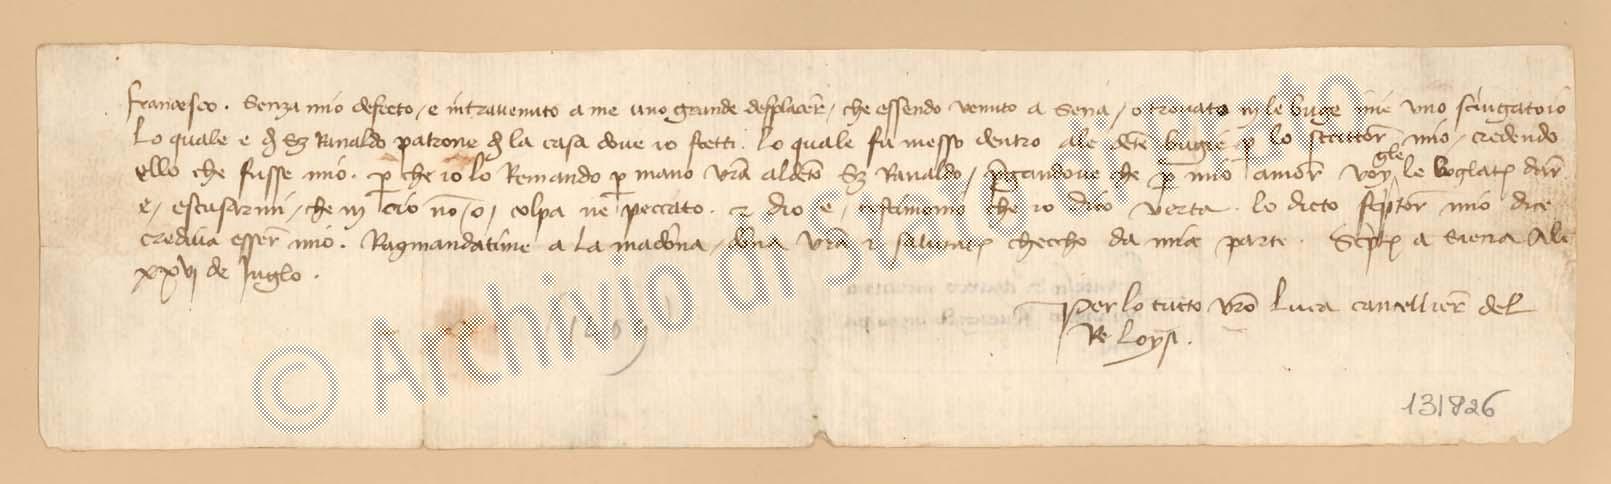 Francesco. Senza mio defecto / e intravenuto a me uno grande desplacer / che essendo venuto a Sena / o trovato in le buge mie uno sciugatoio
Lo quale e de Ser Ranaldo patrone de la casa dove io stetti. Lo quale fu messo dentro ale dete bugie per lo scrittor mio / credendo
ello che fusse mio. per che io lo Remando per mano vra al deto Ser Ranaldo / pregandove che per mio amor voy gle le voglate dar
e / escusarmi / che in cio no / o / colpa ne peccato. et dio e / testimonio che io dico verta. lo dicto scriptor mio dice
crediva esser mio. Ragmandatime a la madona / dona vra et salutate Checcho da mia parte. Scripte a Siena Ali
xxvi de Juglo.
Per lo tutto vro Luca cancellier del
Re Loysi.
1409
131826
© Archivio di Stato di Prato